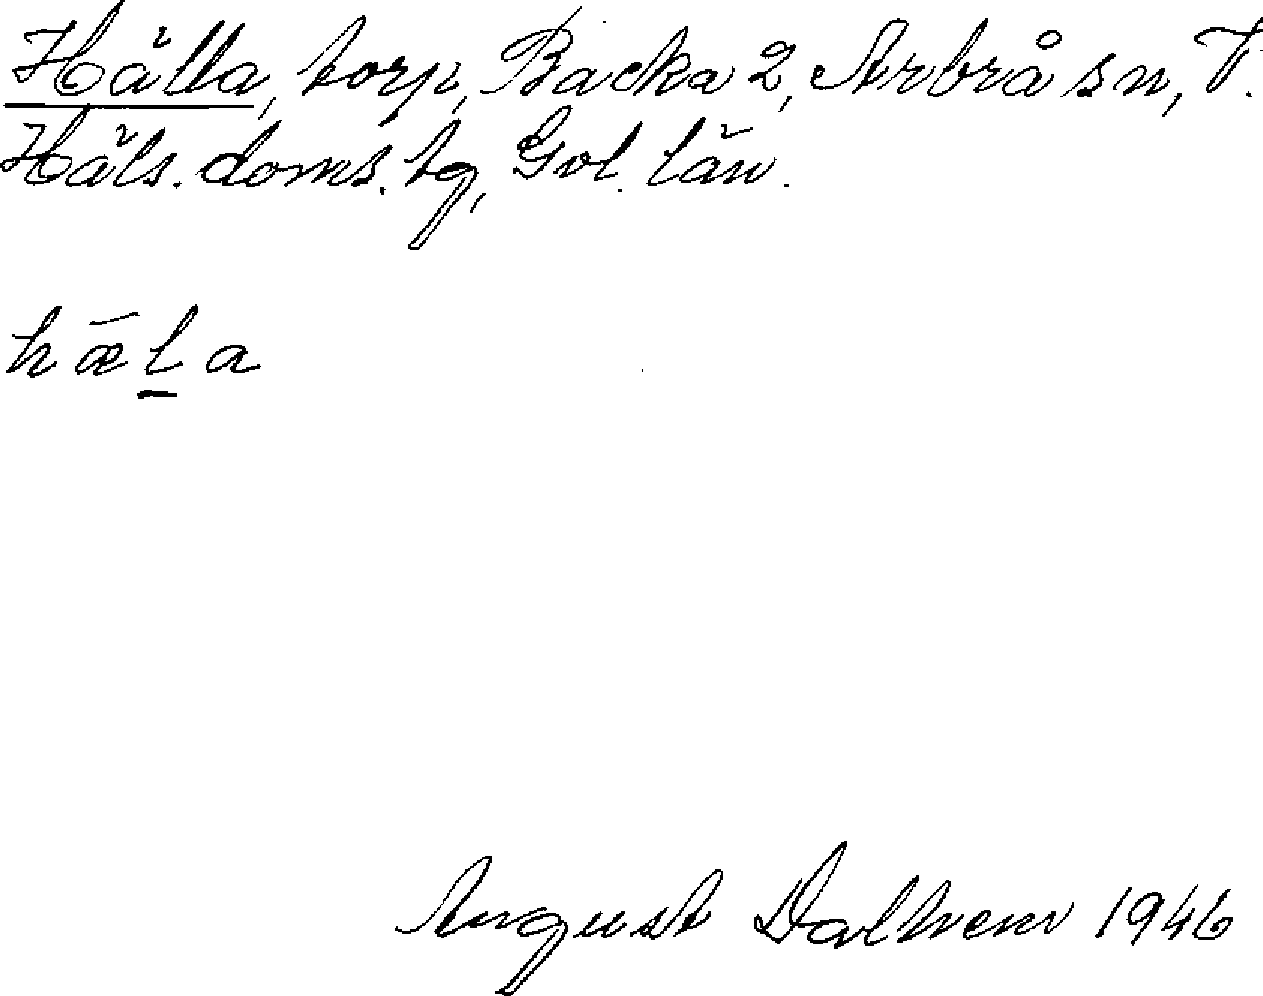 Hälla, torp, Backa 2, Arbrå sn, V.
Häls. doms. tg, Gvl. län.
hǣl̲a
August Dalhem 1946